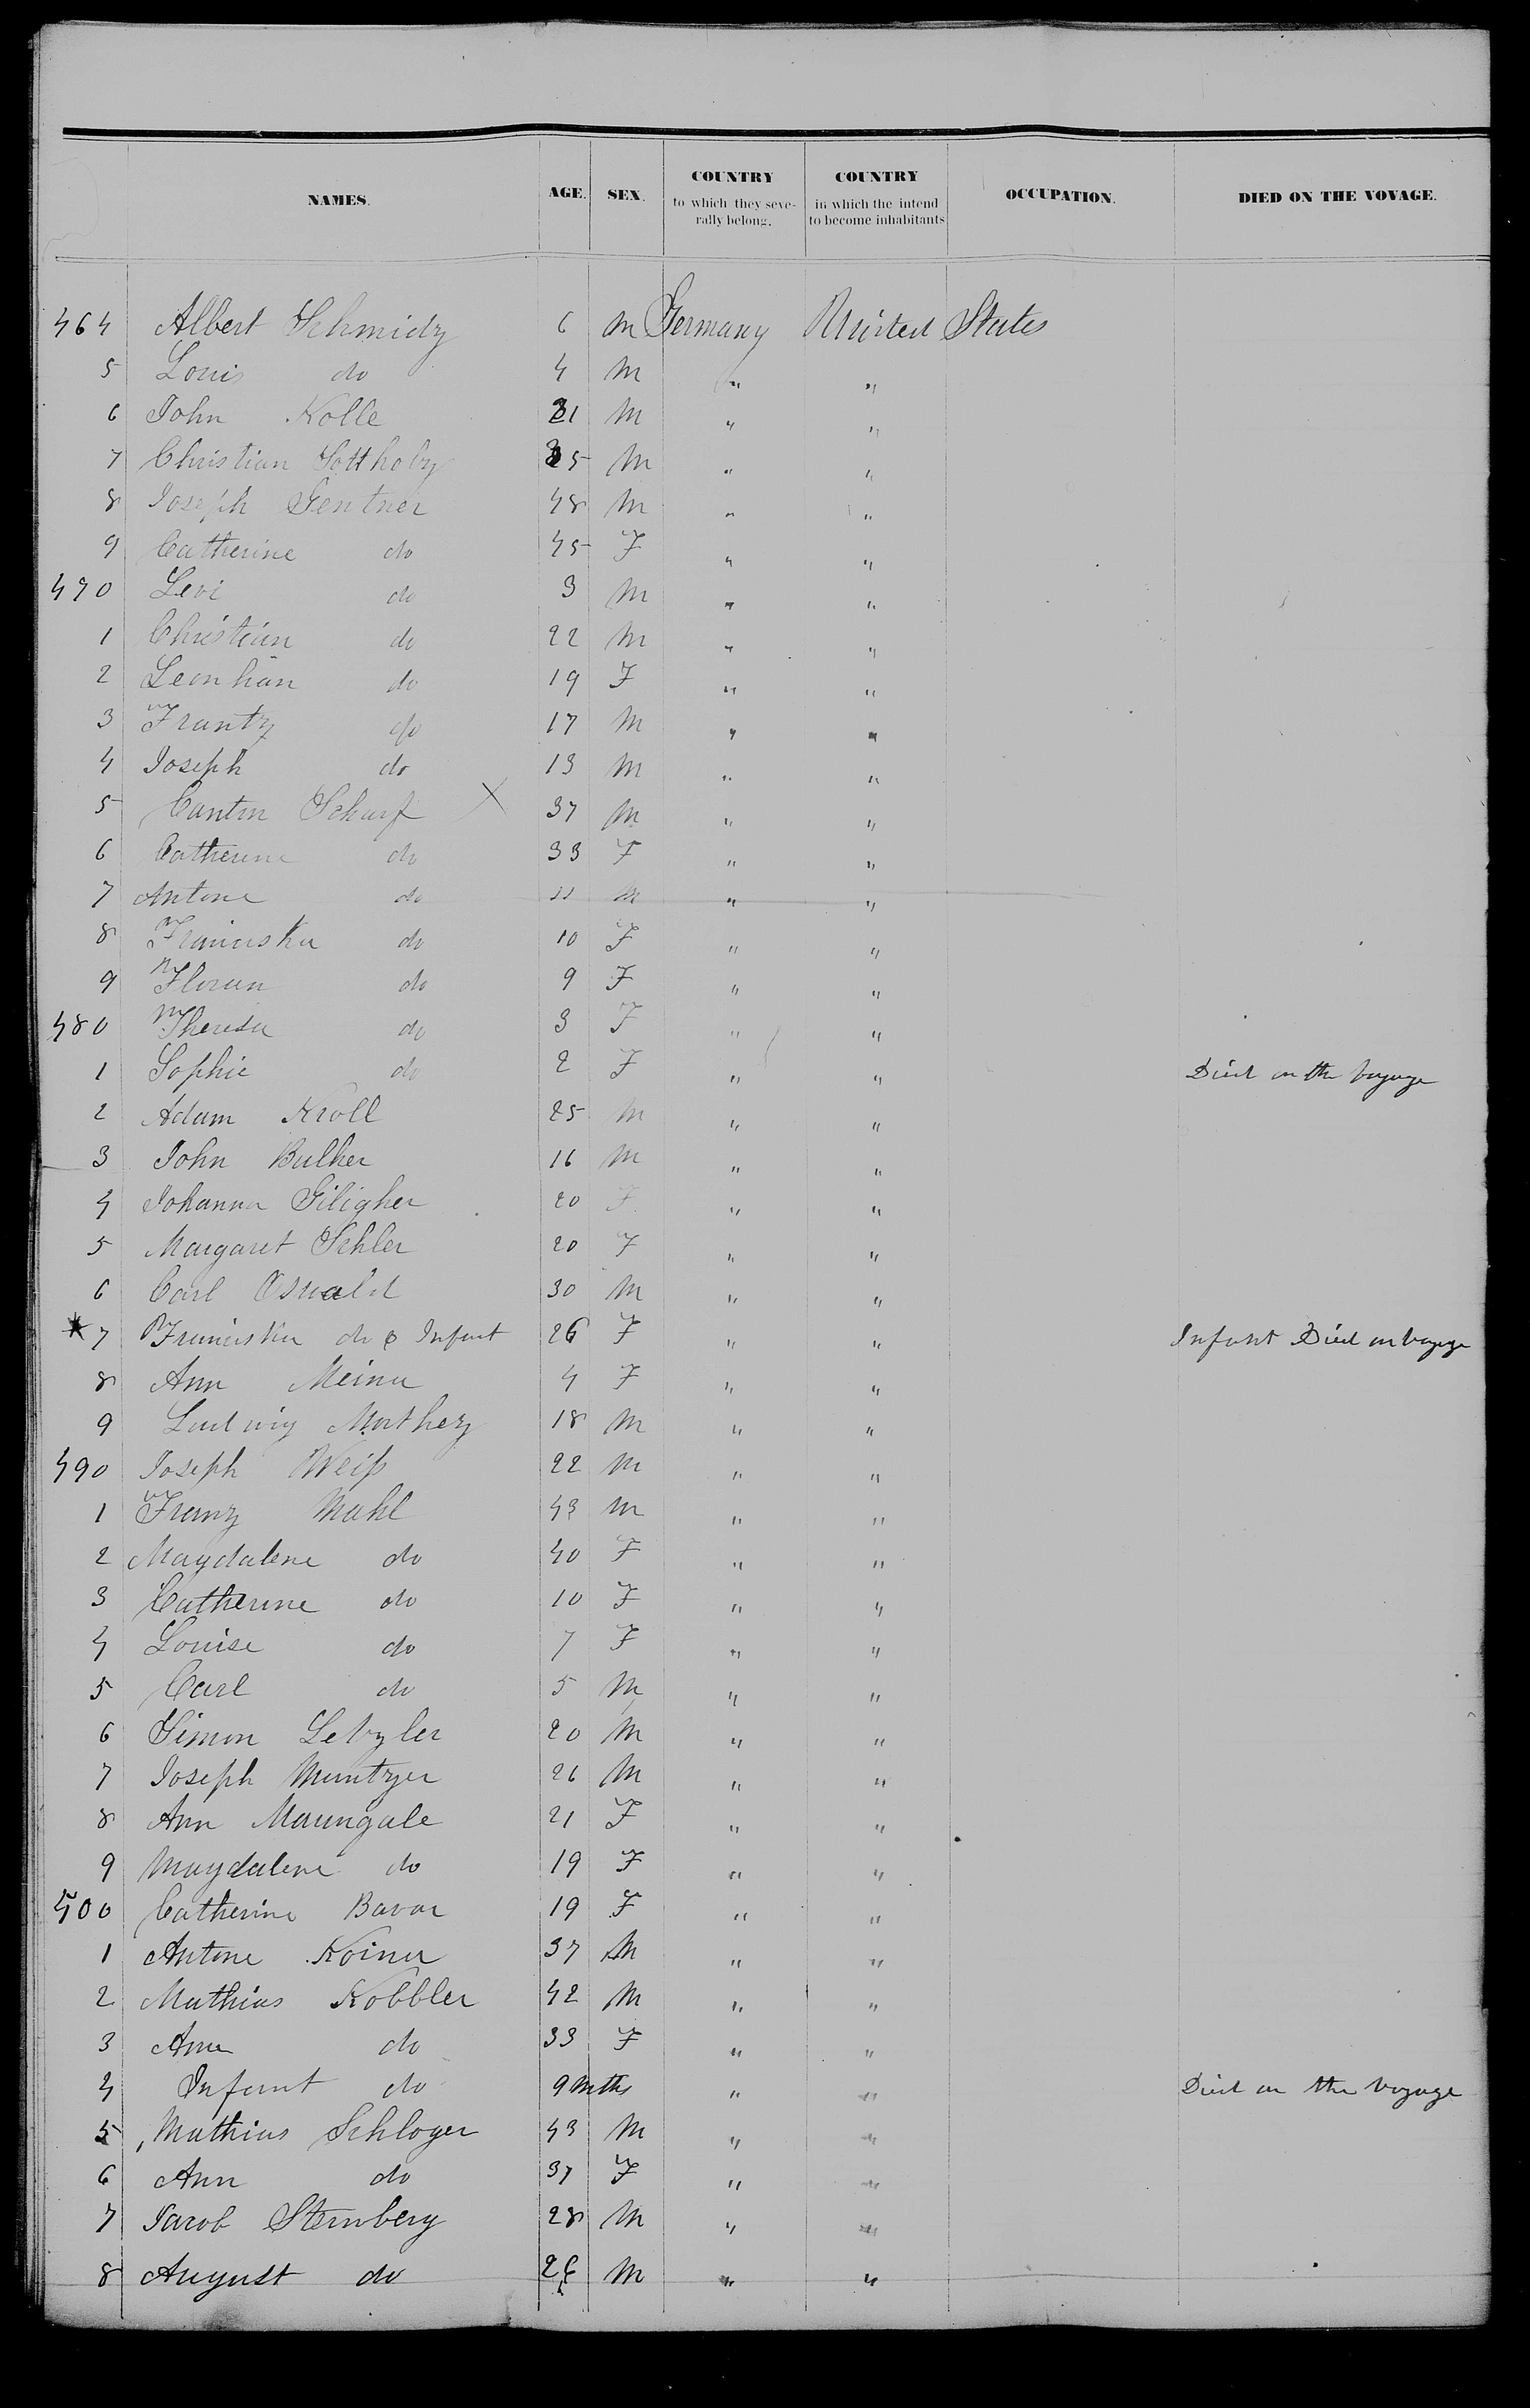 NAMES. AGE. SEX. COUNTRY to which they seve-rally belong. COUNTRY in which the intend to become inhabitants OCCUPATION. DIED ON THE VOYAGE.
464 Albert Schmidz 6 M Germany United States
5 Louis do 4 M " "
6 John Kolle 31 M " "
7 Christian 35 M " "
8 Joseph Gentner 48 M " "
9 Catherine do 45 F " "
470 Levi do 3 M " "
1 Christian do 22 M " "
2 Leonhan do 19 F " "
3 Frantz do 17 M " "
4 Joseph do 13 M " "
5 Canton Scharf X 37 M " "
6 Catherine do 33 F " "
7 Antone do 11 M " "
8 Franciska do 10 F " "
9 Floran do 9 F " "
480 Theresa do 3 F " "
1 Sophie do 2 F " " Died on the Voyage
2 Adam Kroll 25 M " "
3 John Bulher 16 M " "
4 Johanna Giligher 20 F " "
5 Margaret Schler 20 F " "
6 Carl Oswald 30 M " "
* 7 Franciska do & Infant 26 F " " Infant Died on Voyage
8 Ann Meinu 4 F " "
9 Ludwig Mathez 18 M " "
490 Joseph Weiſs 22 M " "
1 Franz Mahl 43 M " "
2 Magdalene do 40 F " "
3 Catherine do 10 F " "
4 Louise do 7 F " "
5 Carl do 5 M " "
6 Simon Letzler 20 M " "
7 Joseph Muntzer 26 M " "
8 Ann Maungale 21 F " "
9 Magdalene do 19 F " "
500 Catherine Bavar 19 F " "
1 Antone Koinu 37 M " "
2 Mathias Kobbler 42 M " "
3 Anna do 33 F " "
4 Infant do 9 Mths " " Died on the Voyage
5 Mathias Schloger 43 M " "
6 Ann do 37 F " "
7 Jacob Sternberg 28 M " "
8 August do 26 M " "